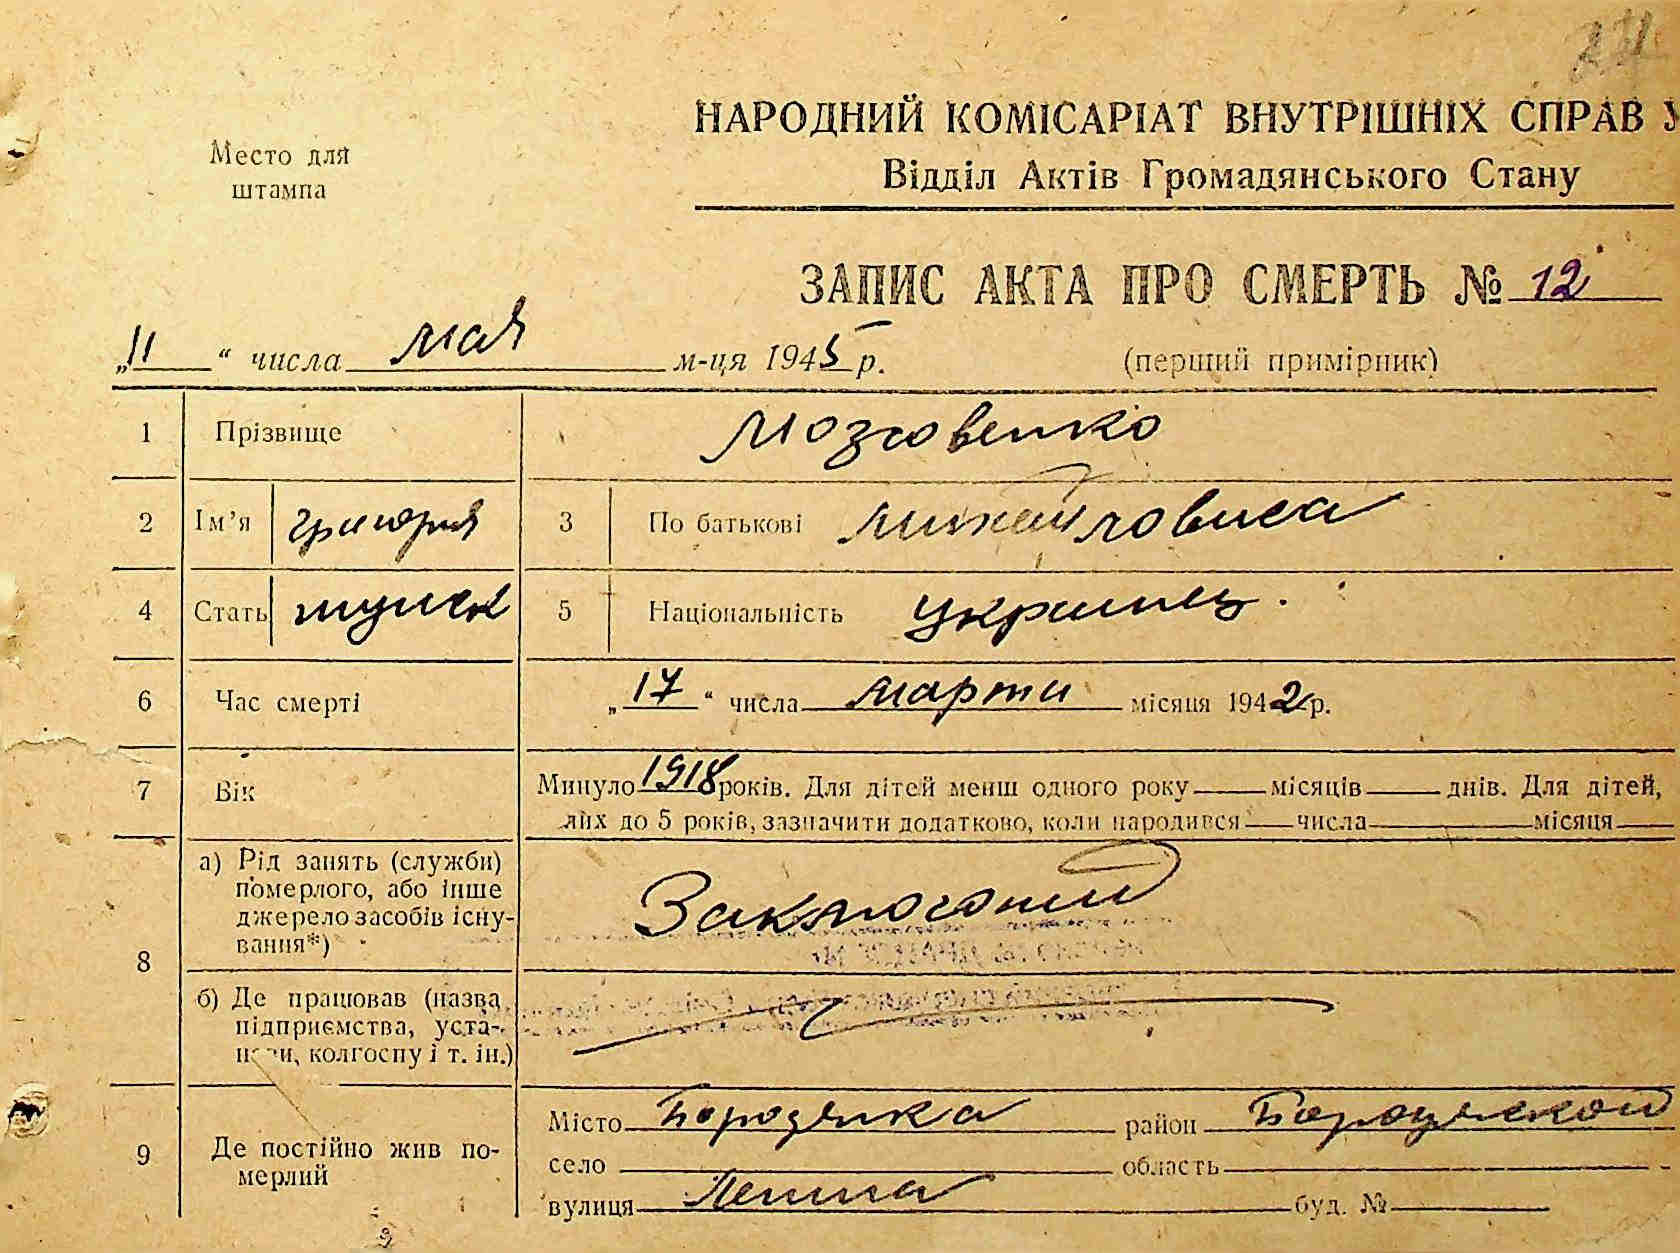 НАРОДНИЙ КОМІСАРІАТ ВНУТРІШНІХ СПРАВ У
Відділ Актів Громадянського Стану
Место для
штампа
ЗАПИС АКТА ПРО СМЕРТЬ № 12
„11“ числа мая м-ця 1945 р.
(перший примірник)
1 Прізвище Мозговенко
2 Ім'я Григория 3 По батькові Михайловича
4 Стать мужск 5 Національність Украинец.
6 Час смерті „17“ числа марта місяця 1942 р.
7 Вік Минуло 1918 років. Для дітей менш одного року місяців днів. Для дітей,
лих до 5 років, зазначити додатково, коли народився числа місяця
8 а) Рід занять (служби)
померлого, або інше
джерело засобів існу-
вання*)
б) Де працював (назва
підприємства, уста-
нови, колгоспу і т. ін.)
9 Де постійно жив по-
мерлий
Місто Бородянка район Бородянской
село область
вулиця Ленина буд. №